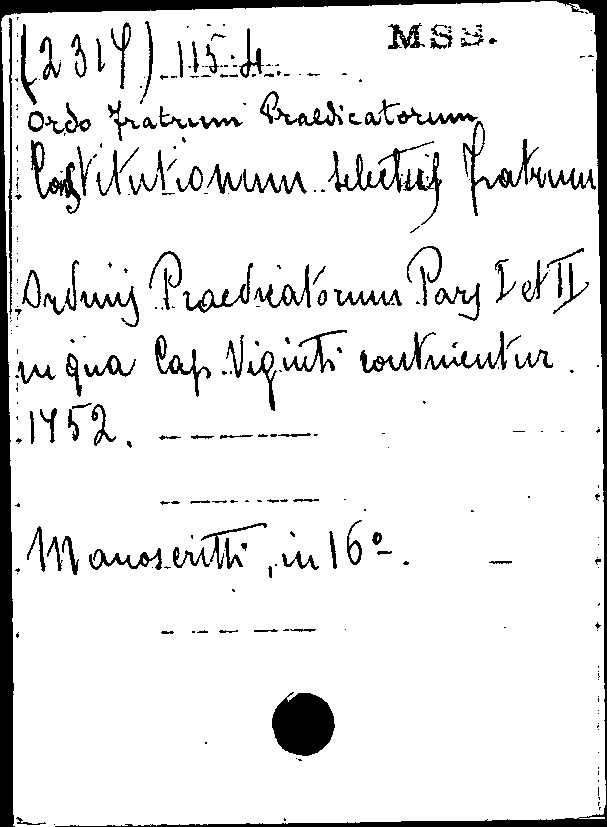 (2317) 115.4. MSS.
Ordo Fratrum Praedicatorum
Constitutionum selectus Fratrum
Ordinis Praedicatorum Pars I et II
in qua Cap. Viginti continentur.
1752.
Manoscritti, in 16º.